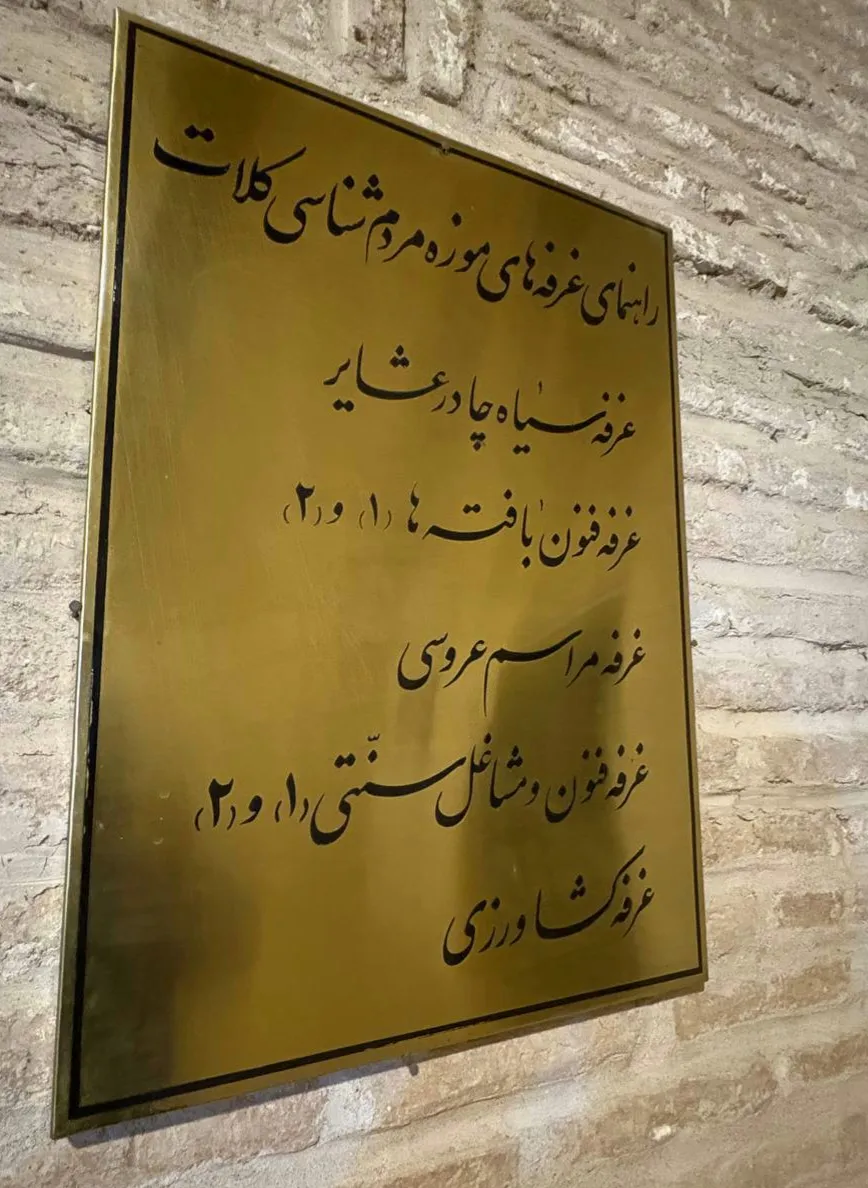 راهنمای غرفه‌های موزه مردم شناسی کلات
غرفه سیاه چادر عشایر
غرفه فنون بافته ها (۱) و (۲)
غرفه مراسم عروسی
غرفه فنون و مشاغل سنّتی (۱) و (۲)
غرفه کشاورزی